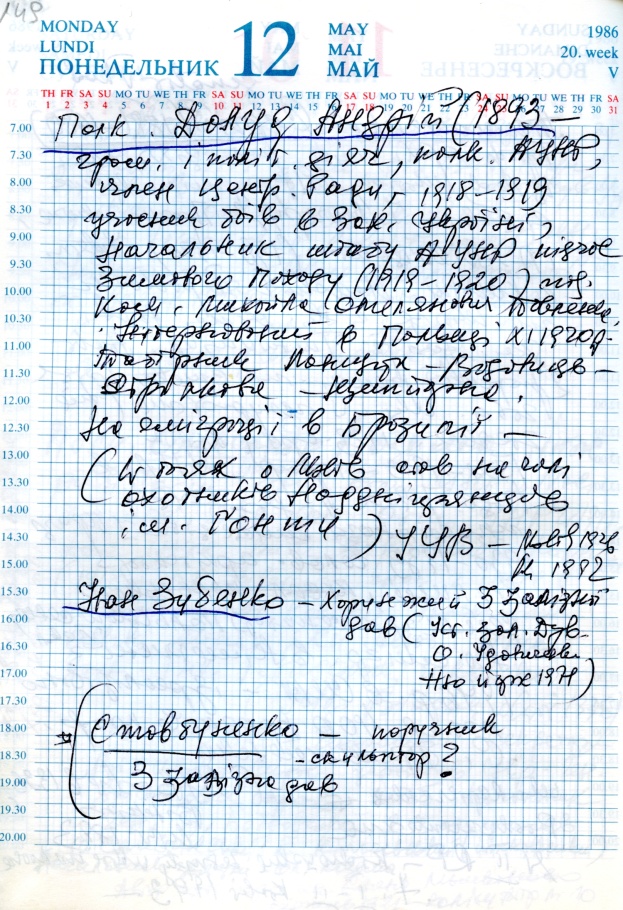 149
MONDAY
LUNDI
ПОНЕДЕЛЬНИК
12
MAY
MAI
МАЙ
1986
20. week
V
TH FR SA SU MO TU WE TH FR SA SU MO TU WE TH FR SA SU MO TU WE TH FR SA SU MO TU WE TH FR SA
1 2 3 4 5 6 7 8 9 10 11 12 13 14 15 16 17 18 19 20 21 22 23 24 25 26 27 28 29 30 31
7.00
7.30
8.00
8.30
9.00
9.30
10.00
10.30
11.00
11.30
12.00
12.30
13.00
13.30
14.00
14.30
15.00
15.30
16.00
16.30
17.00
17.30
18.00
18.30
19.00
19.30
20.00
Полк. Долуд Андрій (1893 –
гром. і політ. діяч, полк. АУНР,
член Центр. Ради, 1918–1919
учасник боїв в Зах. Україні,
Начальник штабу АУНР підчас
Зимового Походу (1919–1920) під
Ком. Микойла Омеляновича Павленка
Інтернований в Польщі XI 1920 р.
Таборник Ланцута – Вадовиць –
Стралкова – Щипйорна.
На еміграції в Бразилії –
охотників Наддніпрянців
ім. Ґонти) УУВ –
Іван Зубенко – Хорунжий 3 Залізної
див (
Ню Йорк 1971)
(Стовбуненко – поручник
– скульптор ?
3 Залізна див